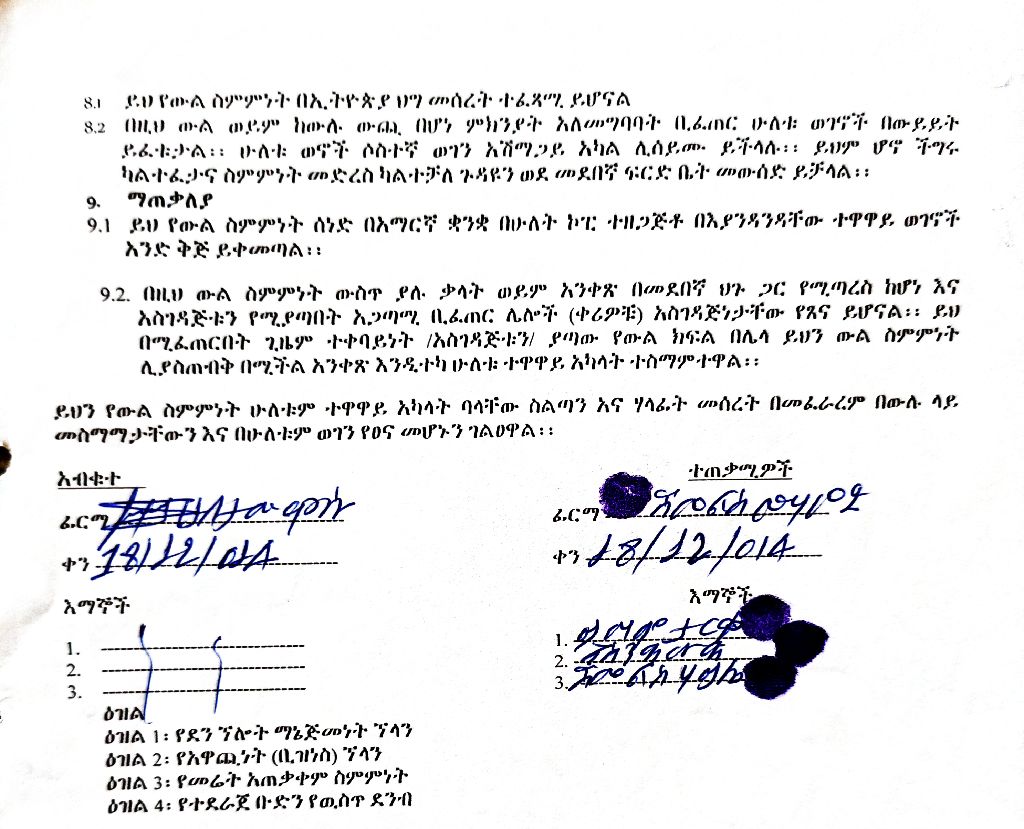 8.1 ይህ የውል ስምምነት በኢትዮጵያ ህግ መሰረት ተፈጻሚ ይሆናል
8.2 በዚህ ውል ወይም ከውሉ ውጪ በሆነ ምክንያት አለመግባባት ቢፈጠር ሁለቱ ወገኖች በውይይት
ይፈቱታል፡፡ ሁለቱ ወኖች ሶስተኛ ወገን አሸማጋይ አካል ሊሰይሙ ይችላሉ፡፡ ይህም ሆኖ ችግሩ
ካልተፈታና ስምምነት መድረስ ካልተቻለ ጉዳዩን ወደ መደበኛ ፍርድ ቤት መውሰድ ይቻላል፡፡
9. ማጠቃለያ
9.1 ይህ የውል ስምምነት ሰነድ በአማርኛ ቋንቋ በሁለት ኮፒ ተዘጋጅቶ በእያንዳንዳቸው ተዋዋይ ወገኖች
አንድ ቅጅ ይቀመጣል፡፡
9.2. በዚህ ውል ስምምነት ውስጥ ያሉ ቃላት ወይም አንቀጽ በመደበኛ ህጉ ጋር የሚጣረስ ከሆነ እና
አስገዳጅቱን የሚያጣበት አጋጣሚ ቢፈጠር ሌሎች (ቀሪዎቹ) አስገዳጅነታቸው የጸና ይሆናል፡፡ ይህ
በሚፈጠርበት ጊዜም ተቀባይነት /አስገዳጅቱን/ ያጣው የውል ክፍል በሌላ ይህን ውል ስምምነት
ሊያስጠብቅ በሚችል አንቀጽ እንዲተካ ሁለቱ ተዋዋይ አካላት ተስማምተዋል፡፡
ይህን የውል ስምምነት ሁለቱም ተዋዋይ አካላት ባላቸው ስልጣን እና ሃላፊት መሰረት በመፈራረም በውሉ ላይ
መስማማታቸውን እና በሁለቱም ወገን የፀና መሆኑን ገልፀዋል፡፡
አብቁተ
ተጠቃሚዎች
ፊርማ
ፊርማ
ቀን 18/12/014
ቀን 18/12/014
እማኞች
እማኞች
1.
2.
3.
1.
2.
3.
ዕዝል
ዕዝል 1፡ የደን ኘሎት ማኔጅመነት ኘላን
ዕዝል 2፡ የአዋጪነት (ቢዝነስ) ኘላን
ዕዝል 3፡ የመሬት አጠቃቀም ስምምነት
ዕዝል 4፡ የተደራጀ ቡድን የዉስጥ ደንብ